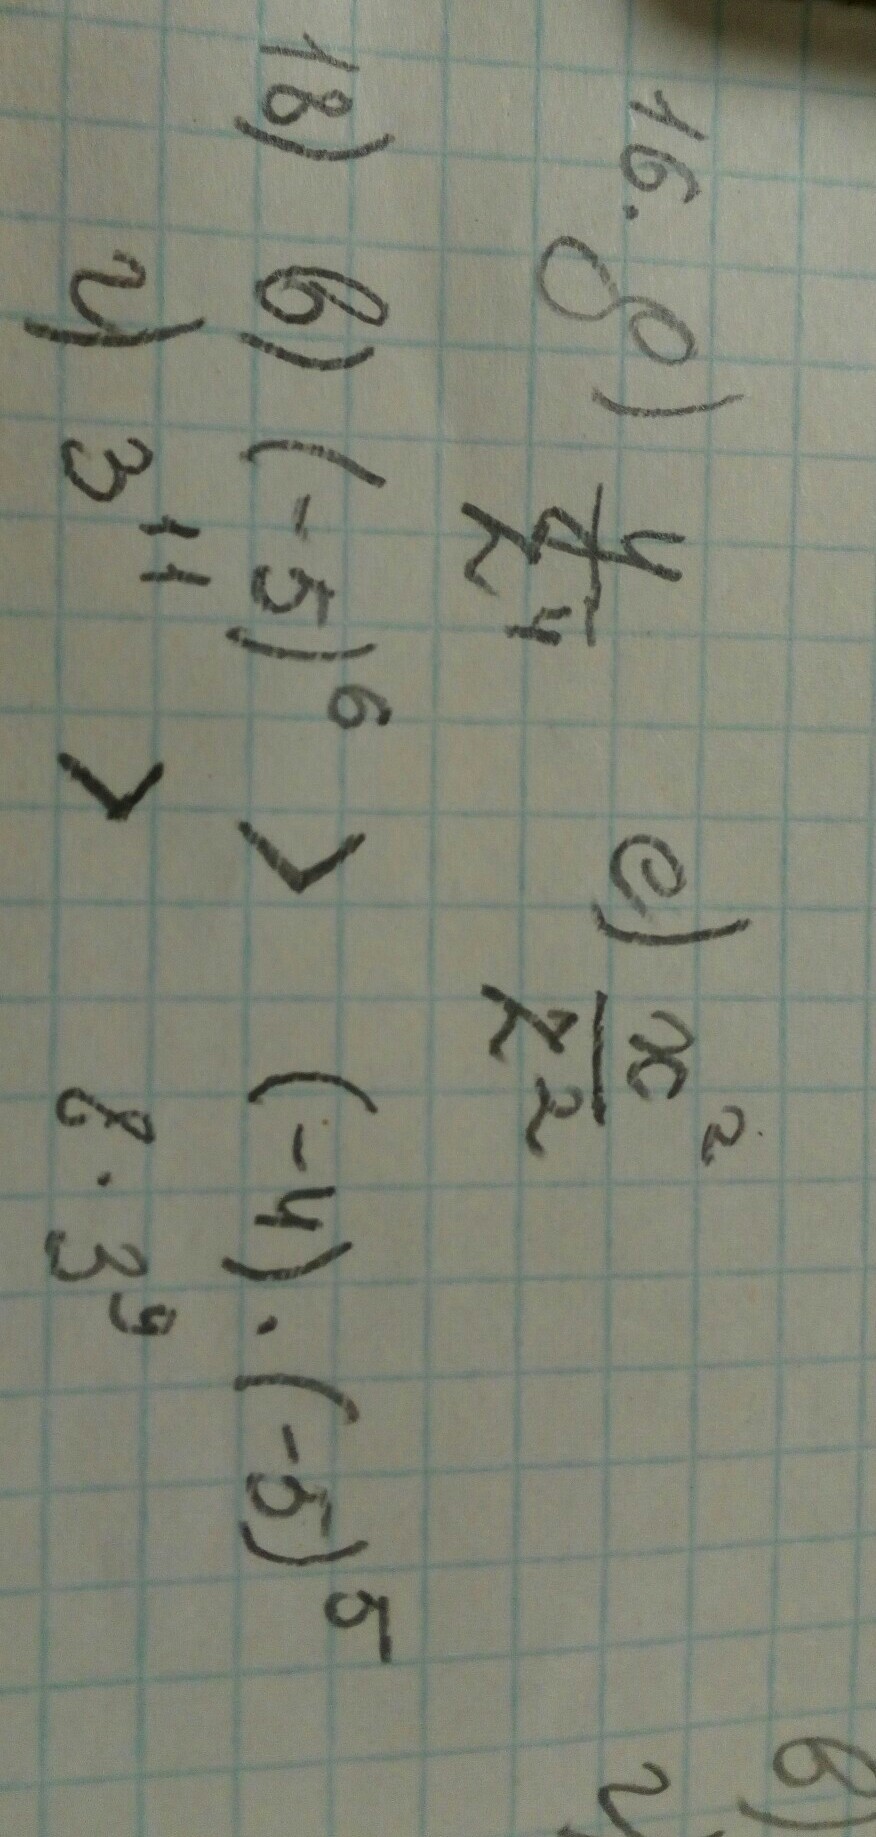 16. д) 4/z⁴ е) x²/z²
18) в) (-5)⁶ > (-4)·(-5)⁵
г) 3¹¹ > 8·3⁹
в)
г)